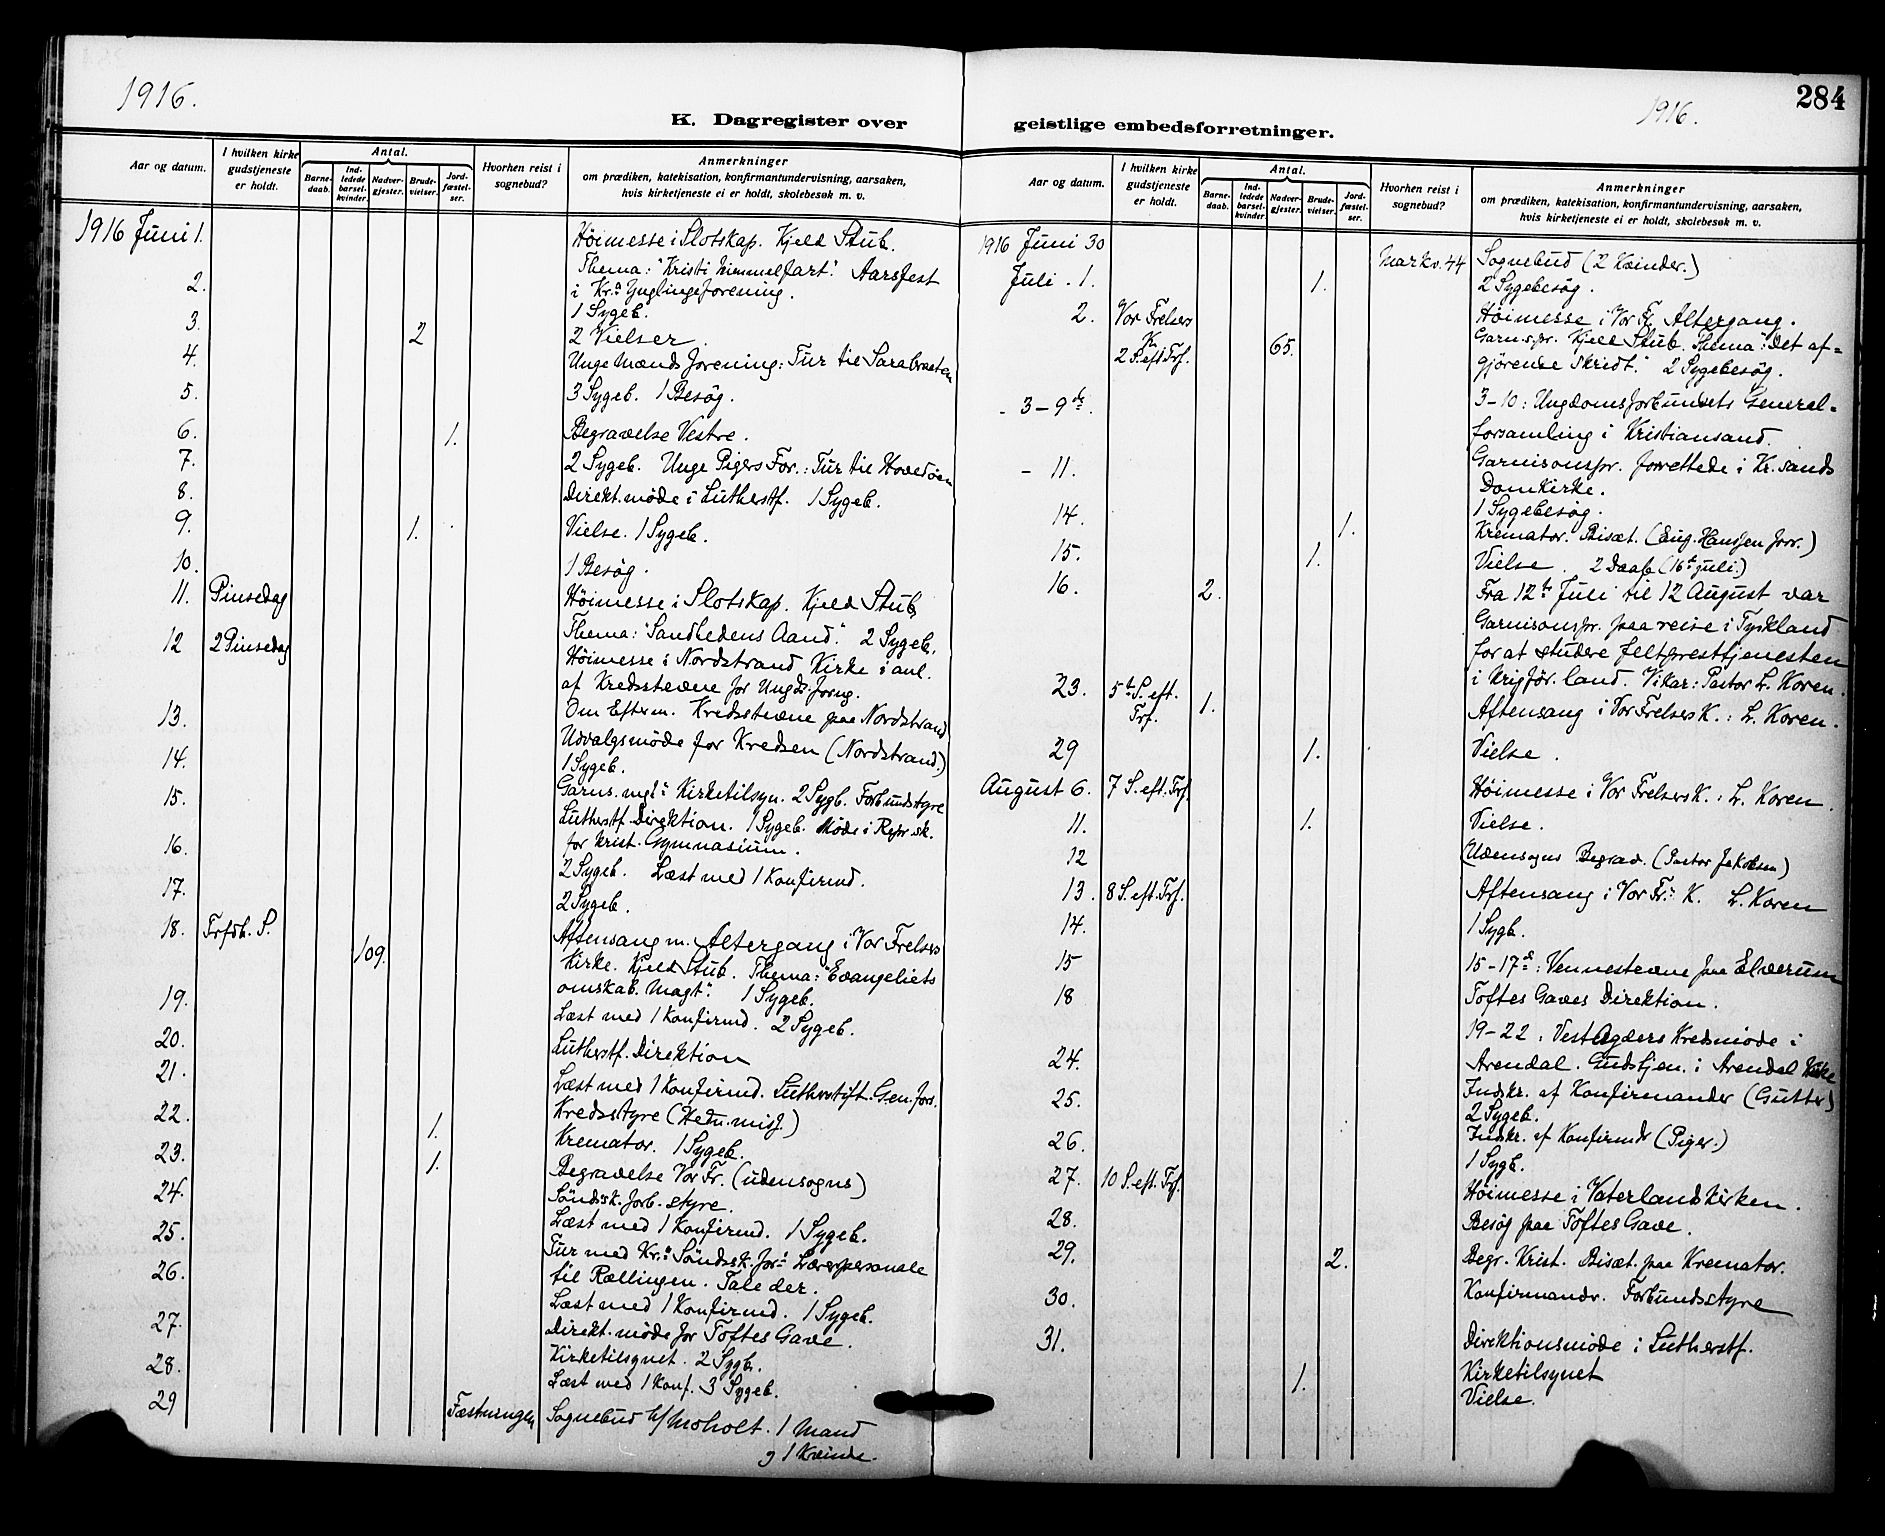 1916.
K. Dagregister over
Aar og datum.
I hvilken kirke gudstjeneste er holdt.
Antal.
Barne-daab.
Ind-ledede barsel-kvinder.
Nadver-gjester.
Brude-vielser.
Jord-fæstel-ser.
Hvorhen reist i sognebud?
Anmerkninger
om prædiken, katekisation, konfirmantundervisning, aarsaken,
hvis kirketjeneste ei er holdt, skolebesøk m. v.
1916 Juni 1. Høimesse i Slotskap. Kjeld Stub.
Thema: "Kristi himmelfart." Aarsfest
2. i Kr.a Ynglingeforening.
1 Sygeb.
3. 2 2 Vielser.
4. Unge Mænds forening: Tur til Sarabraaten
5. 3 Sygeb. 1 Besøg.
6. 1. Begravelse Vestre.
7. 2 Sygeb. Unge Pigers For.: Tur til Hovedøen
8. Direkt. møde i Lutherstf. 1 Sygeb.
9. 1. Vielse. 1 Sygeb.
10. 1 Besøg.
11. Pinsedag Høimesse i Slotskap. Kjeld Stub
Thema: "Sandhedens Aand." 2 Sygeb.
12 2 Pinsedag Høimesse i Nordstrand Kirke i anl.
af Kredsstevne for Ungds. forng.
13. Om Efterm. Kredsstevne paa Nordstrand
Udvalgsmøde for Kredsen (Nordstrand.)
14. 1 Sygeb.
Garns. mgl. Kirketilsyn. 2 Sygb. Forbundsstyre
15. Lutherstf. Direktion. 1 Sygeb. Møde i Repr. sk.
for krist. Gymnasium.
16. 2 Sygeb. Læst med 1 Konfirmd.
17. 2 Sygeb.
18. Trfdh. S. 109. Aftensang m. Altergang i Vor Frelsers
Kirke. Kjeld Stub. Thema: "Evangeliets
omskab. Magt". 1 Sygeb.
19. Læst med 1 Konfirmd. 2 Sygeb.
20. Lutherstf. Direktion
21. Læst med 1 Konfirmd. Lutherstift. Gen. fors.
22. Kredsstyre (Hedn. misj.)
1. Kremator. 1 Sygeb.
23. 1. Begravelse Vor Fr. (udensogns)
24. Søndsk. forb. styre.
25. Læst med 1 Konfirmd. 1 Sygeb.
Tur med Kr.a Søndsk. for.s Lærerpersonale
26. til Rællingen. Tale der.
Læst med 1 Konfirmd. 1 Sygeb.
27. Direkt. møde for Toftes Gave.
Kirketilsynet. 2 Sygb.
28. Læst med 1 Konf. 3 Sygeb.
29 Fæstningen Sognebud h/ Moholt. 1 Mand
og 1 Kvinde.
284
1916.
geistlige embedsforretninger.
Aar og datum.
I hvilken kirke gudstjeneste er holdt.
Antal.
Barne-daab.
Ind-ledede barsel-kvinder
Nadver-gjester.
Brude-vielser.
Jord-fæstel-ser.
Hvorhen reist i sognebud?
Anmerkninger
om prædiken, katekisation, konfirmantundervisning, aarsaken,
hvis kirketjeneste ei er holdt, skolebesøk m. v.
1916 Juni 30 Markv. 44 Sognebud (2 Kvinder.)
Juli . 1. 1. 2 Sygebesøg.
2. Vor Frelsers Høimesse i Vor Fr. Altergang.
K. 65. Garns. pr. Kjeld Stub. Thema: "Det af-
2 S. eft Trf. gjørende Skridt." 2 Sygebesøg.
- 3-9de. 3-10: Ungdomsforbundets General-
forsamling i Kristiansand.
- 11. Garnisonspr. forrettede i Kr. sands
Domkirke.
14. 1 Sygebesøg.
1. Kremator. Bisæt. (Aug. Hansen forr.)
15. 1. Vielse. 2 Daab (16de juli.)
16. 2. Fra 12te Juli til 12 August var
Garnisonspr. paa reise i Tyskland
for at studere feltpresttjenesten
i krigfør. land. Vikar: Pastor L. Koren.
23. 5te S. eft. Trf. 1. Aftensang i Vor Frelsers K.: L. Koren.
29 1. Vielse.
August 6. 7 S. eft. Trf. Høimesse i Vor Frelsers K.: L. Koren.
11. 1. Vielse.
12 Udensogns Begrav. (Pastor Jakobsen)
13. 8 S. eft. Trf. Aftensang i Vor Fr.s K. L. Koren
14. 1 Sygb.
15 15-17de: Vennestevne paa Elverum
18 Toftes Gaves Direktion.
19-22: Vest Agders Kredsmøde i
24. Arendal. Gudstjen. i Arendal Kirke
25. Indskr. af Konfirmander (Gutter)
2 Sygeb.
26. Indskr. af Konfirmdr (Piger.)
1 Sygb.
27. 10 S. eft. Trf. Høimesse i Vaterlandskirken.
28. Besøg paa Toftes Gave.
29. 2. Begr. Krist. Bisæt. paa Kremator.
30. Konfirmandr. Forbundsstyre
31. Direktionsmøde i Lutherstf.
Kirketilsynet
1. Vielse.